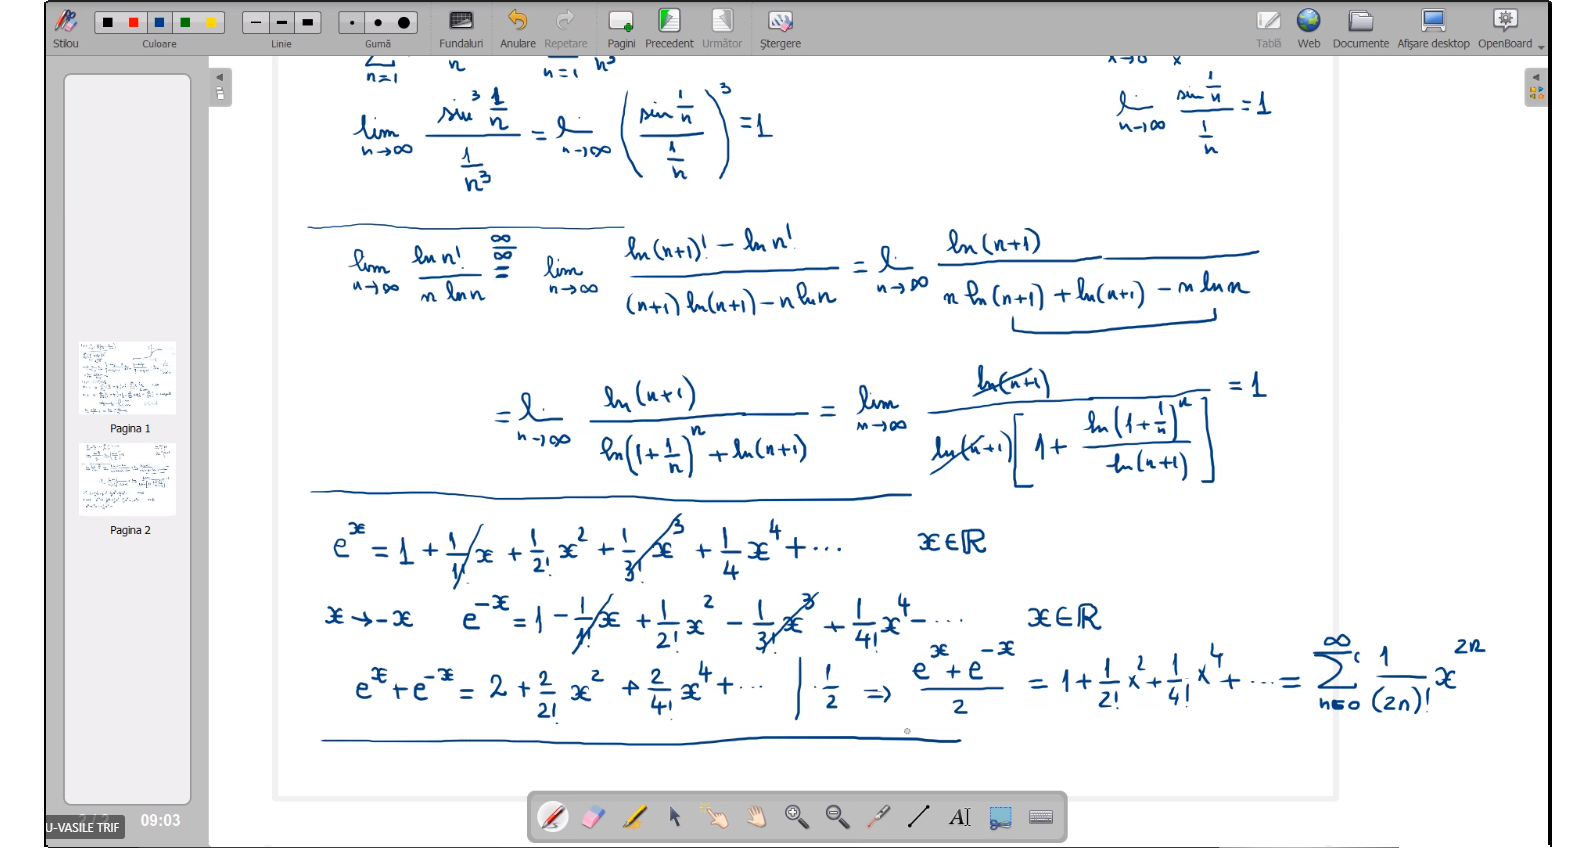 Stilou Culoare Linie Gumă Fundaluri Anulare Repetare Pagini Precedent Următor Ștergere Tablă Web Documente Afişare desktop OpenBoard
n=1 n n=1 n³ x→0 x
lim n→∞ (sin³ 1/n)/(1/n³) = lim n→∞ ((sin 1/n)/(1/n))³ = 1
lim n→∞ (sin 1/n)/(1/n) = 1
lim n→∞ (ln n!)/(n ln n) =^(∞/∞) lim n→∞ (ln(n+1)! - ln n!)/((n+1) ln(n+1) - n ln n) = lim n→∞ (ln(n+1))/(n ln(n+1) + ln(n+1) - n ln n)
= lim n→∞ (ln(n+1))/(ln(1+1/n)^n + ln(n+1)) = lim n→∞ (ln(n+1))/(ln(n+1)[1 + (ln(1+1/n)^n)/(ln(n+1))]) = 1
e^x = 1 + 1/1! x + 1/2! x² + 1/3! x³ + 1/4 x⁴ + ... x∈ℝ
x→-x e^(-x) = 1 - 1/1! x + 1/2! x² - 1/3! x³ + 1/4! x⁴ - ... x∈ℝ
e^x + e^(-x) = 2 + 2/2! x² + 2/4! x⁴ + ... | · 1/2 ⇒ (e^x + e^(-x))/2 = 1 + 1/2! x² + 1/4! x⁴ + ... = ∑_(n=0)^∞ 1/(2n)! x^(2n)
Pagina 1
Pagina 2
U-VASILE TRIF
09:03